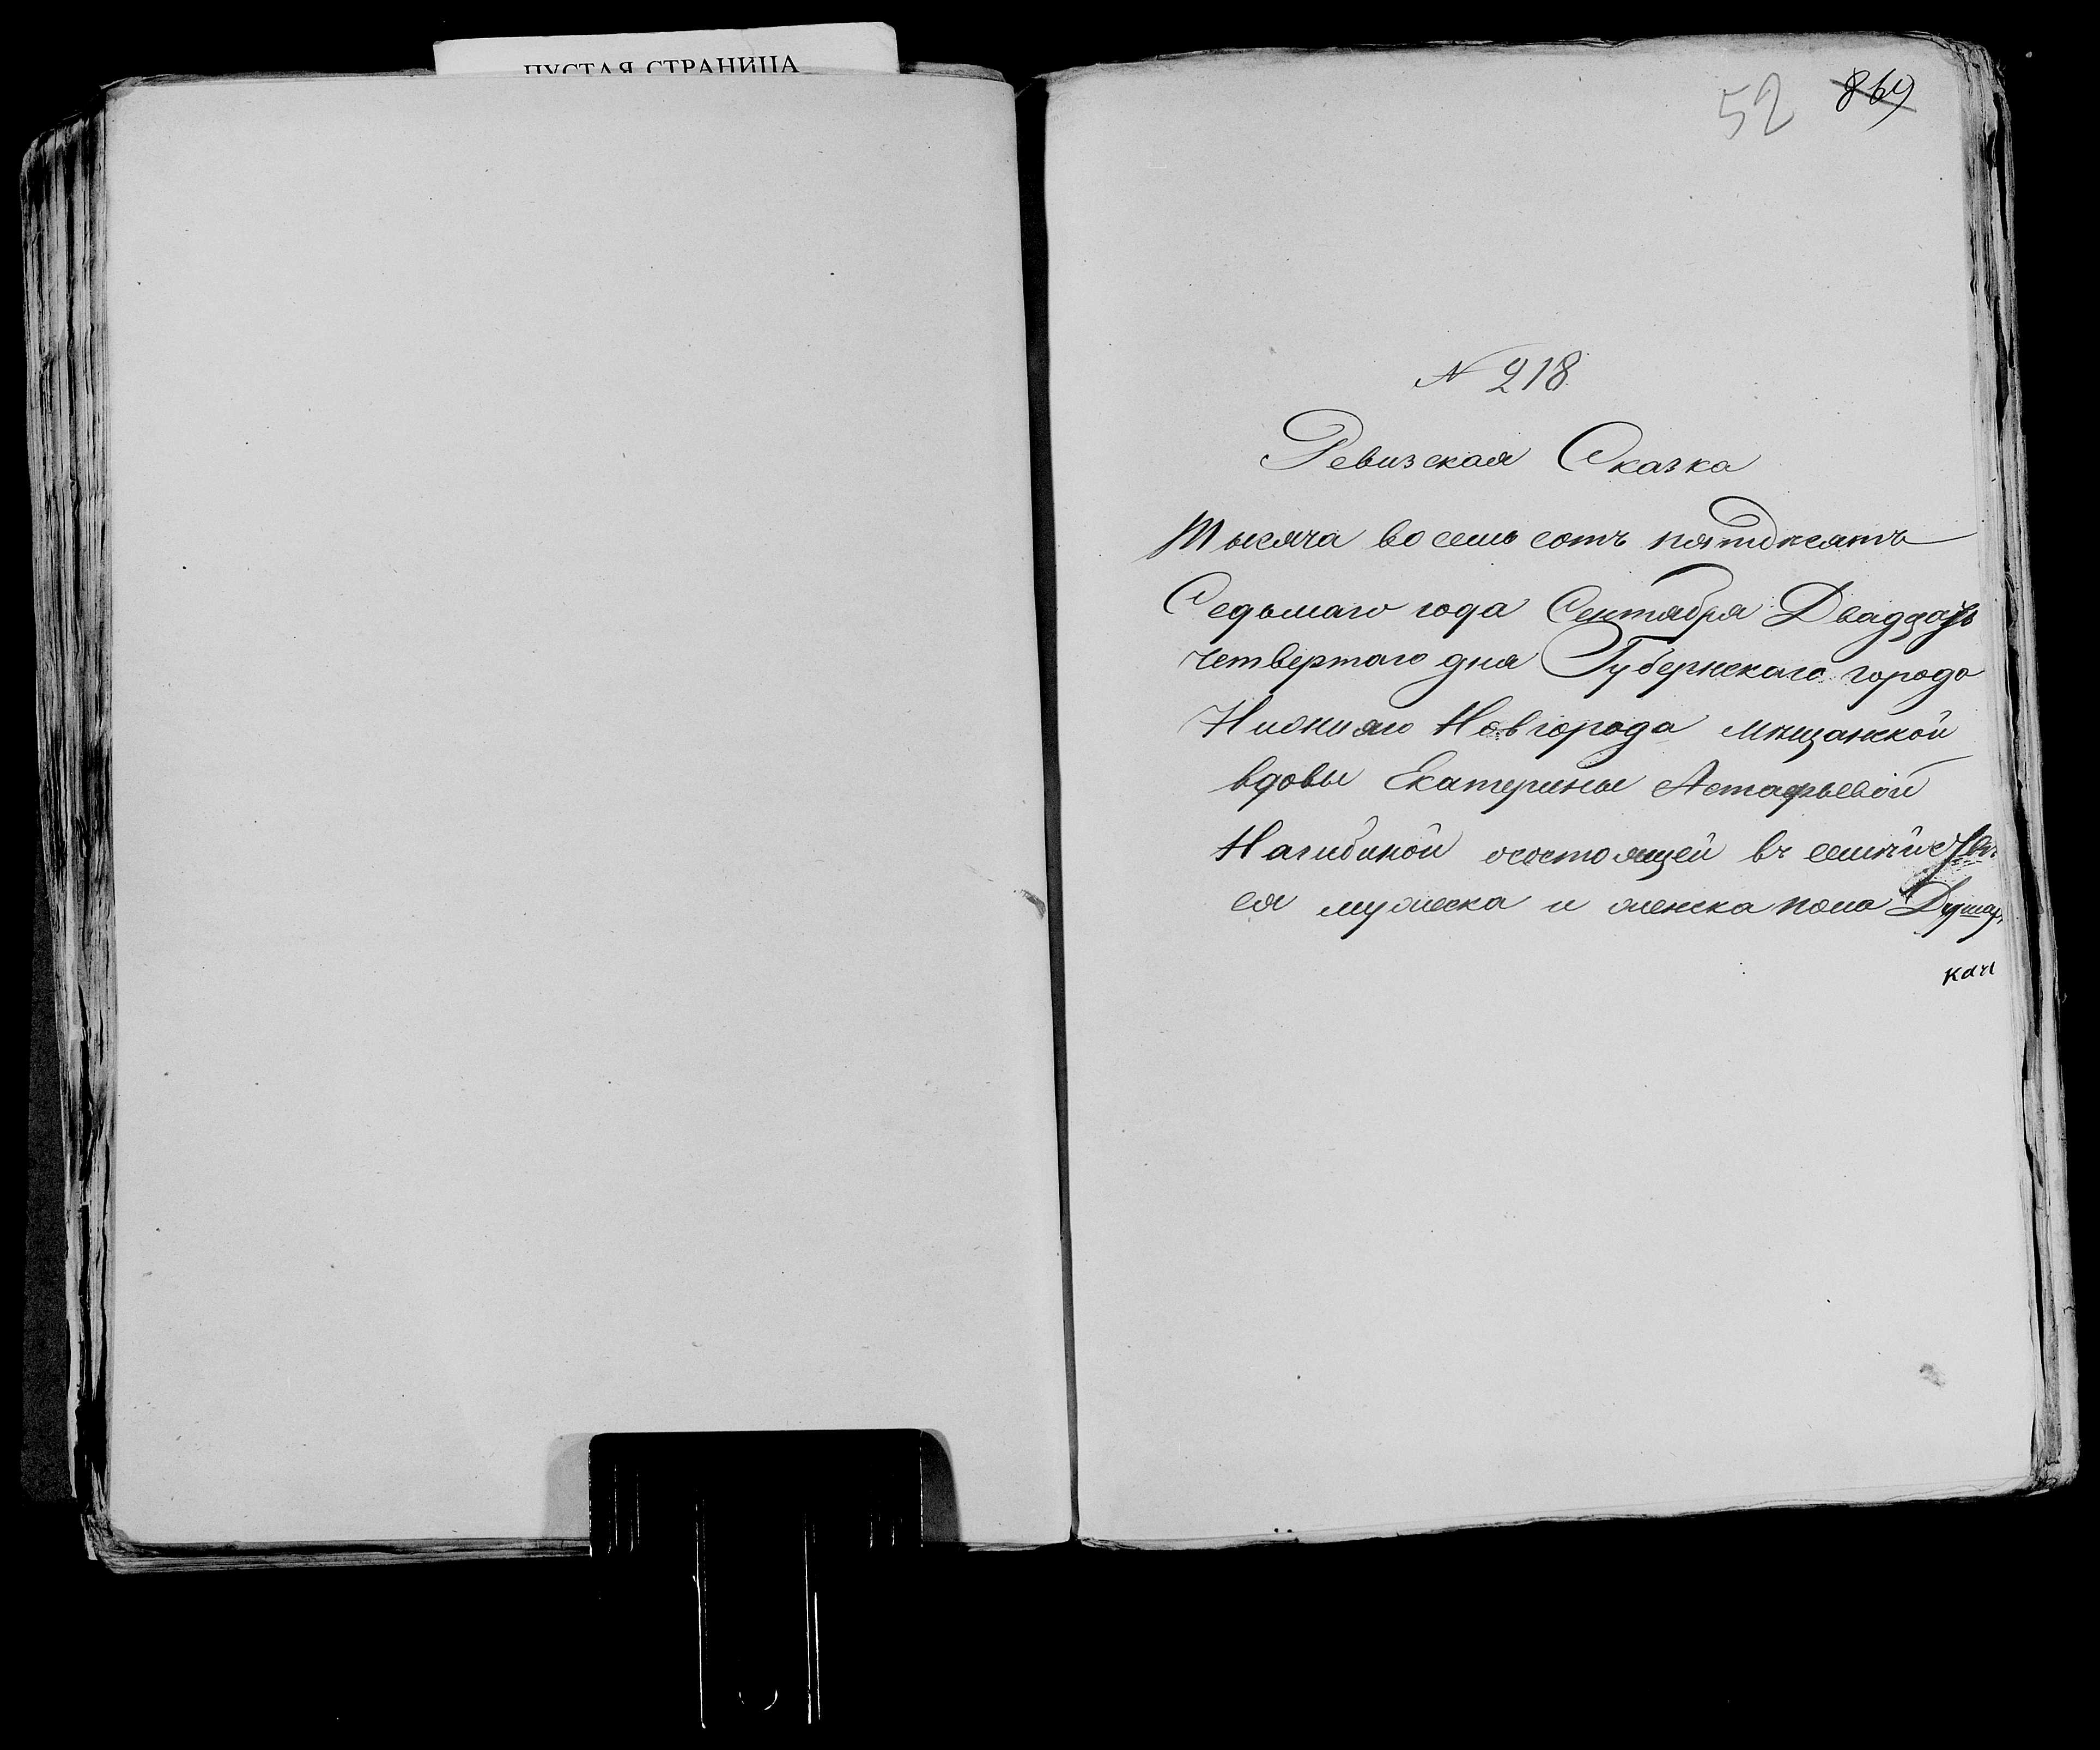 ПУСТАЯ СТРАНИЦА
52 869
N 218
Ревизская Сказка
Тысяча восемь сотъ пятдѣсятъ
Седьмаго года Сентября Двадцать
четвертаго дня Губернскаго города
Нижняго Новгорода мѣщанской
вдовы Екатерины Астафьевой
Нагибиной осостоящей въ семѣйстве
ея мужеска и женска пола Душах